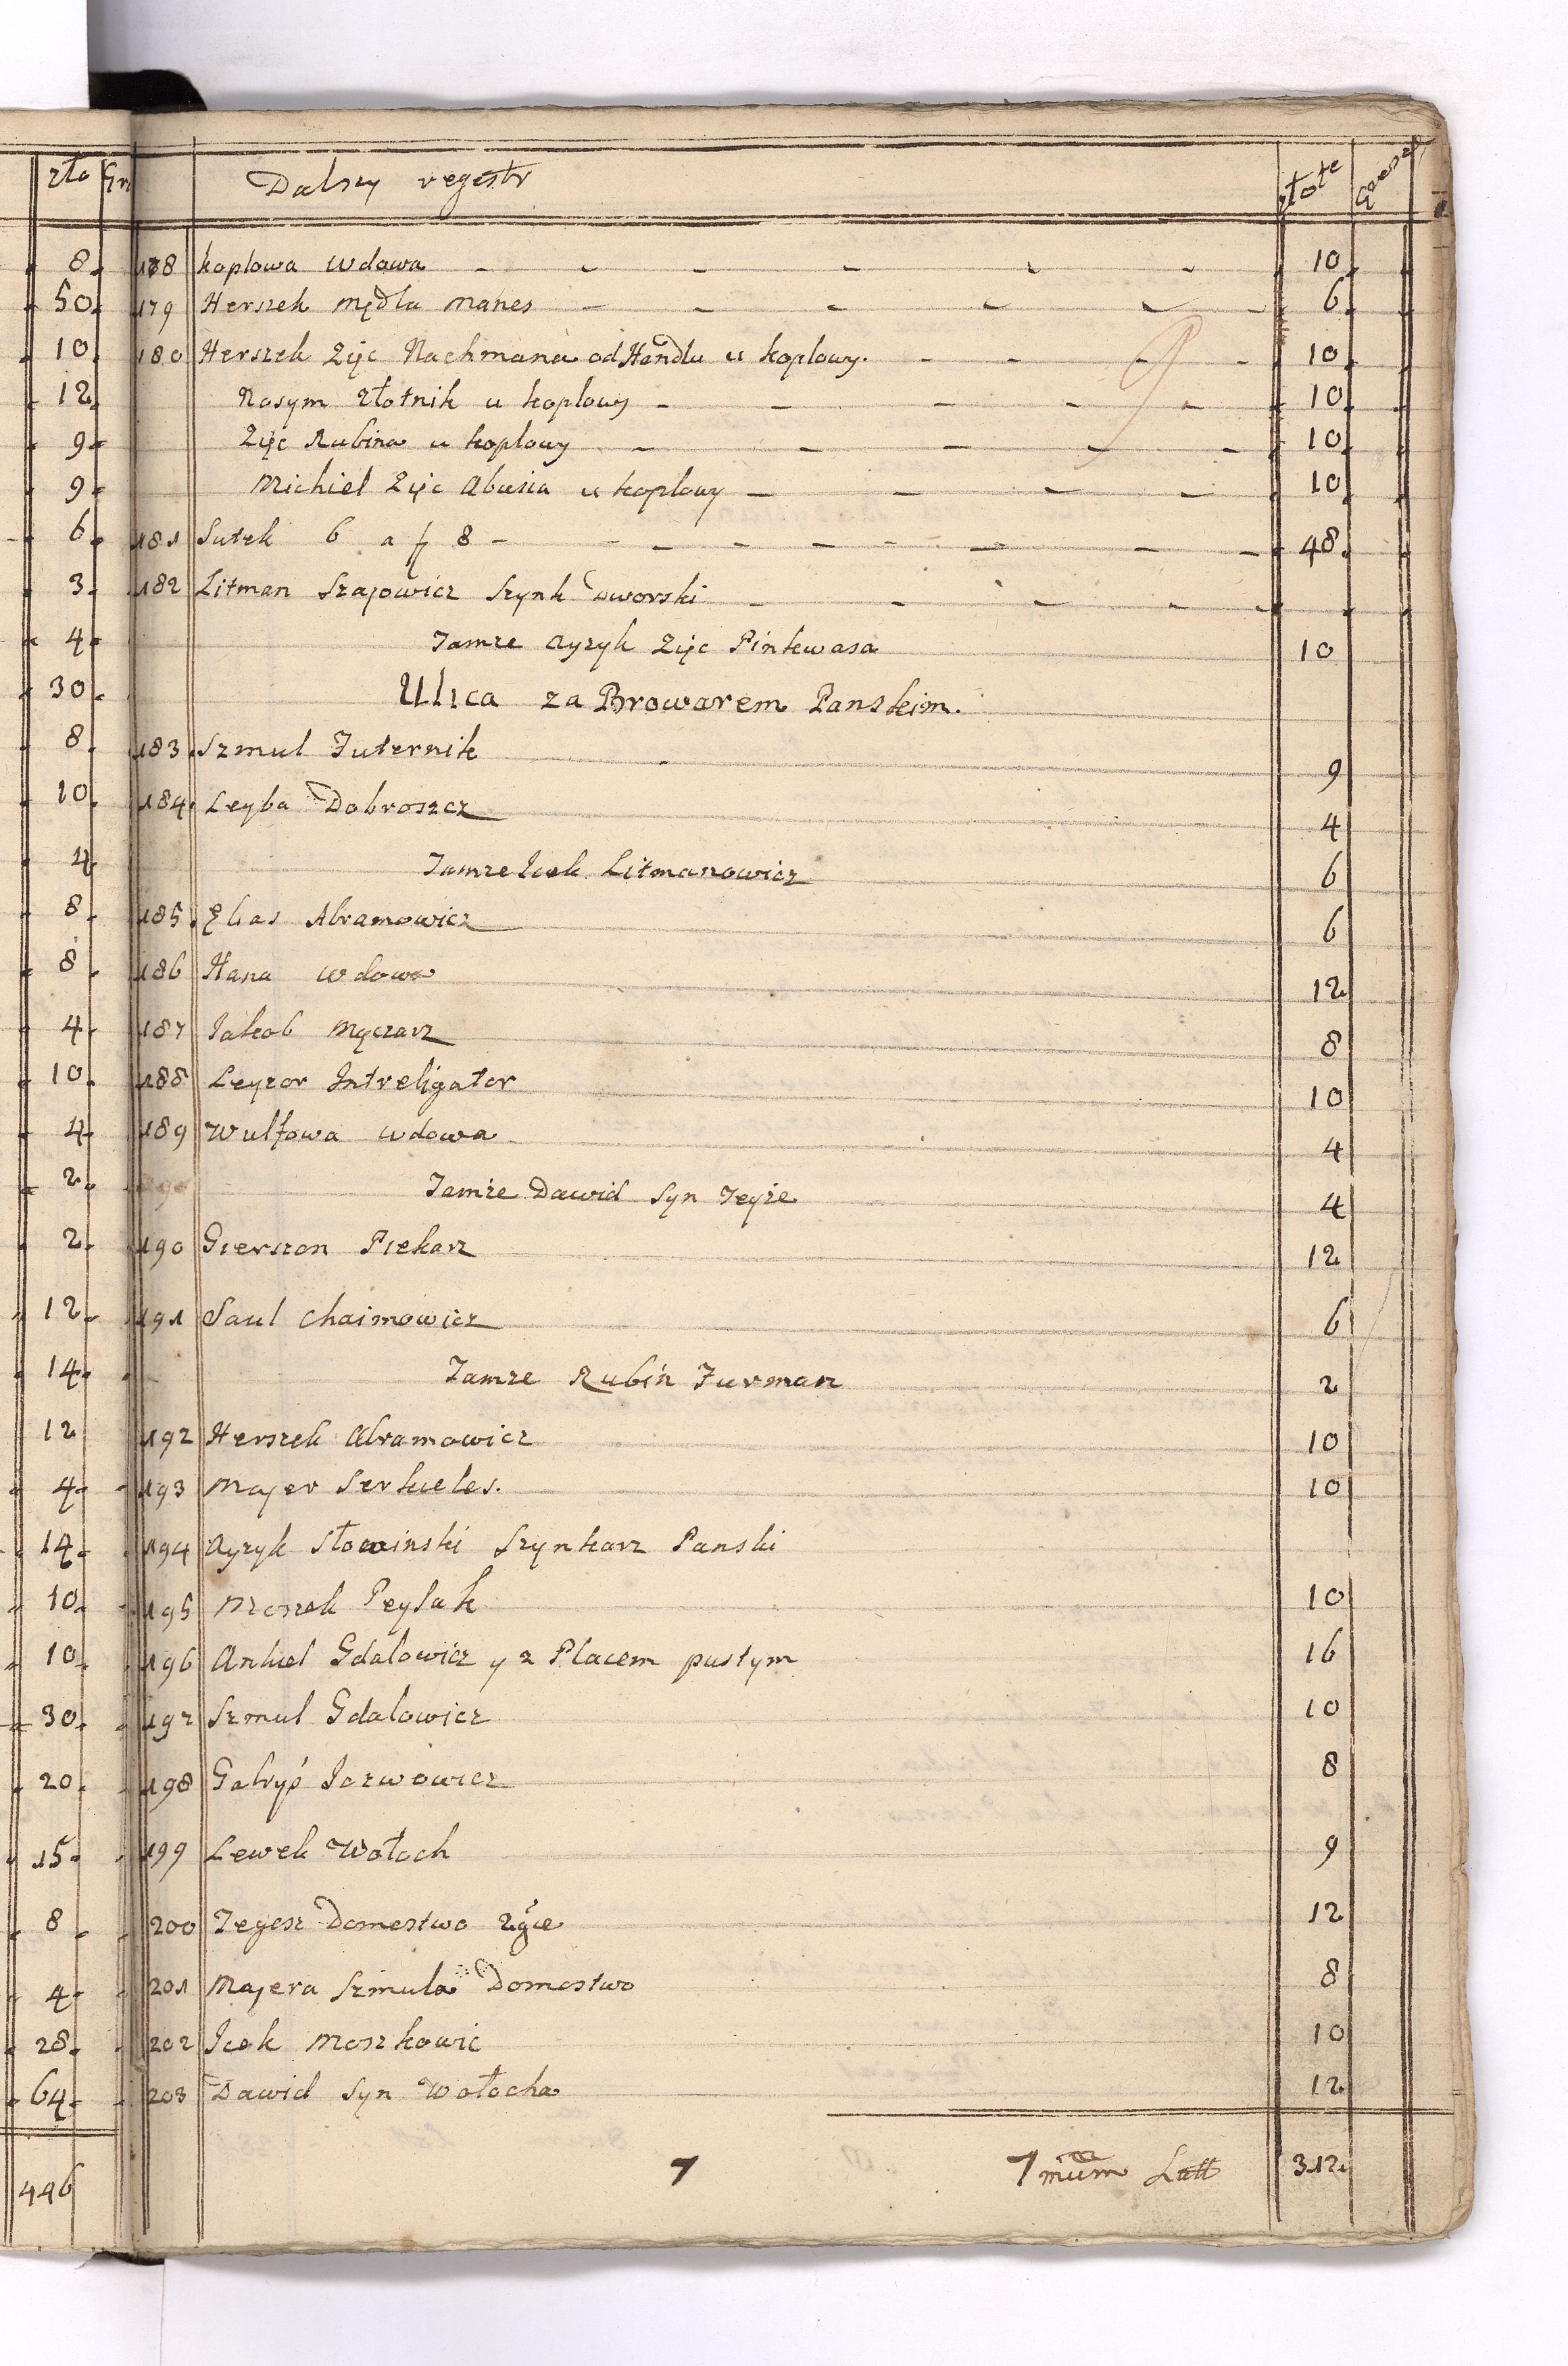 zło Gr
8
50
10
12
9
9
6
3
4
30
8
10
4
8
8
4
10
4
2
2
12
14
12
4
14
10
10
30
20
15
8
4
28
64
446
Dalszy regestr złote Grosze
178 koplowa wdowa - - - - - - 10
179 Herszek Mędla Manes - - - - - - 6
180 Herszek Zięc Nachmana od Handlu u koplowy. - - - - 10
Nosym złotnik u koplowy - - - - - 10
Zięc Rubina u koplowy - - - - - 10
Michiel Zięc Abusia u koplowy - - - - 10
181 Sutek 6 a f 8 - - - - - - - - - 48
182 Litman Szajowicz Szynk dworski - - - - -
Tamze Ayzyk Zięc Pinkwasa 10
Ulica za Browarem Panskim.
183 Szmul Futernik 9
184 Leyba Dobroszcz 4
Tamze Icek Litmanowicz 6
185 Elias Abramowicz 6
186 Hana wdowa 12
187 Jakob Męczarz 8
188 Leyzor Intreligator 10
189 Wulfowa wdowa 4
Tamże Dawid Syn Teyże 4
190 Gierszon Piekarz 12
191 Saul Chaimowicz 6
Tamze Rubin Furman 2
192 Herszek Abramowicz 10
193 Majer Serkieles. 10
194 Ayzyk Słowinski Szynkarz Panski
195 Moszek Peysak 10
196 Ankiel Gdalowicz y z Placem pustym 16
197 Szmul Gdalowicz 10
198 Jozwowicz 8
199 Lewek Wołoch 9
200 Tegosz Domostwo 12
201 Majera Szmula Domostwo 8
202 Icek Moszkowic 10
203 Dawid Syn Wołocha 12
7 7mum Latt 312